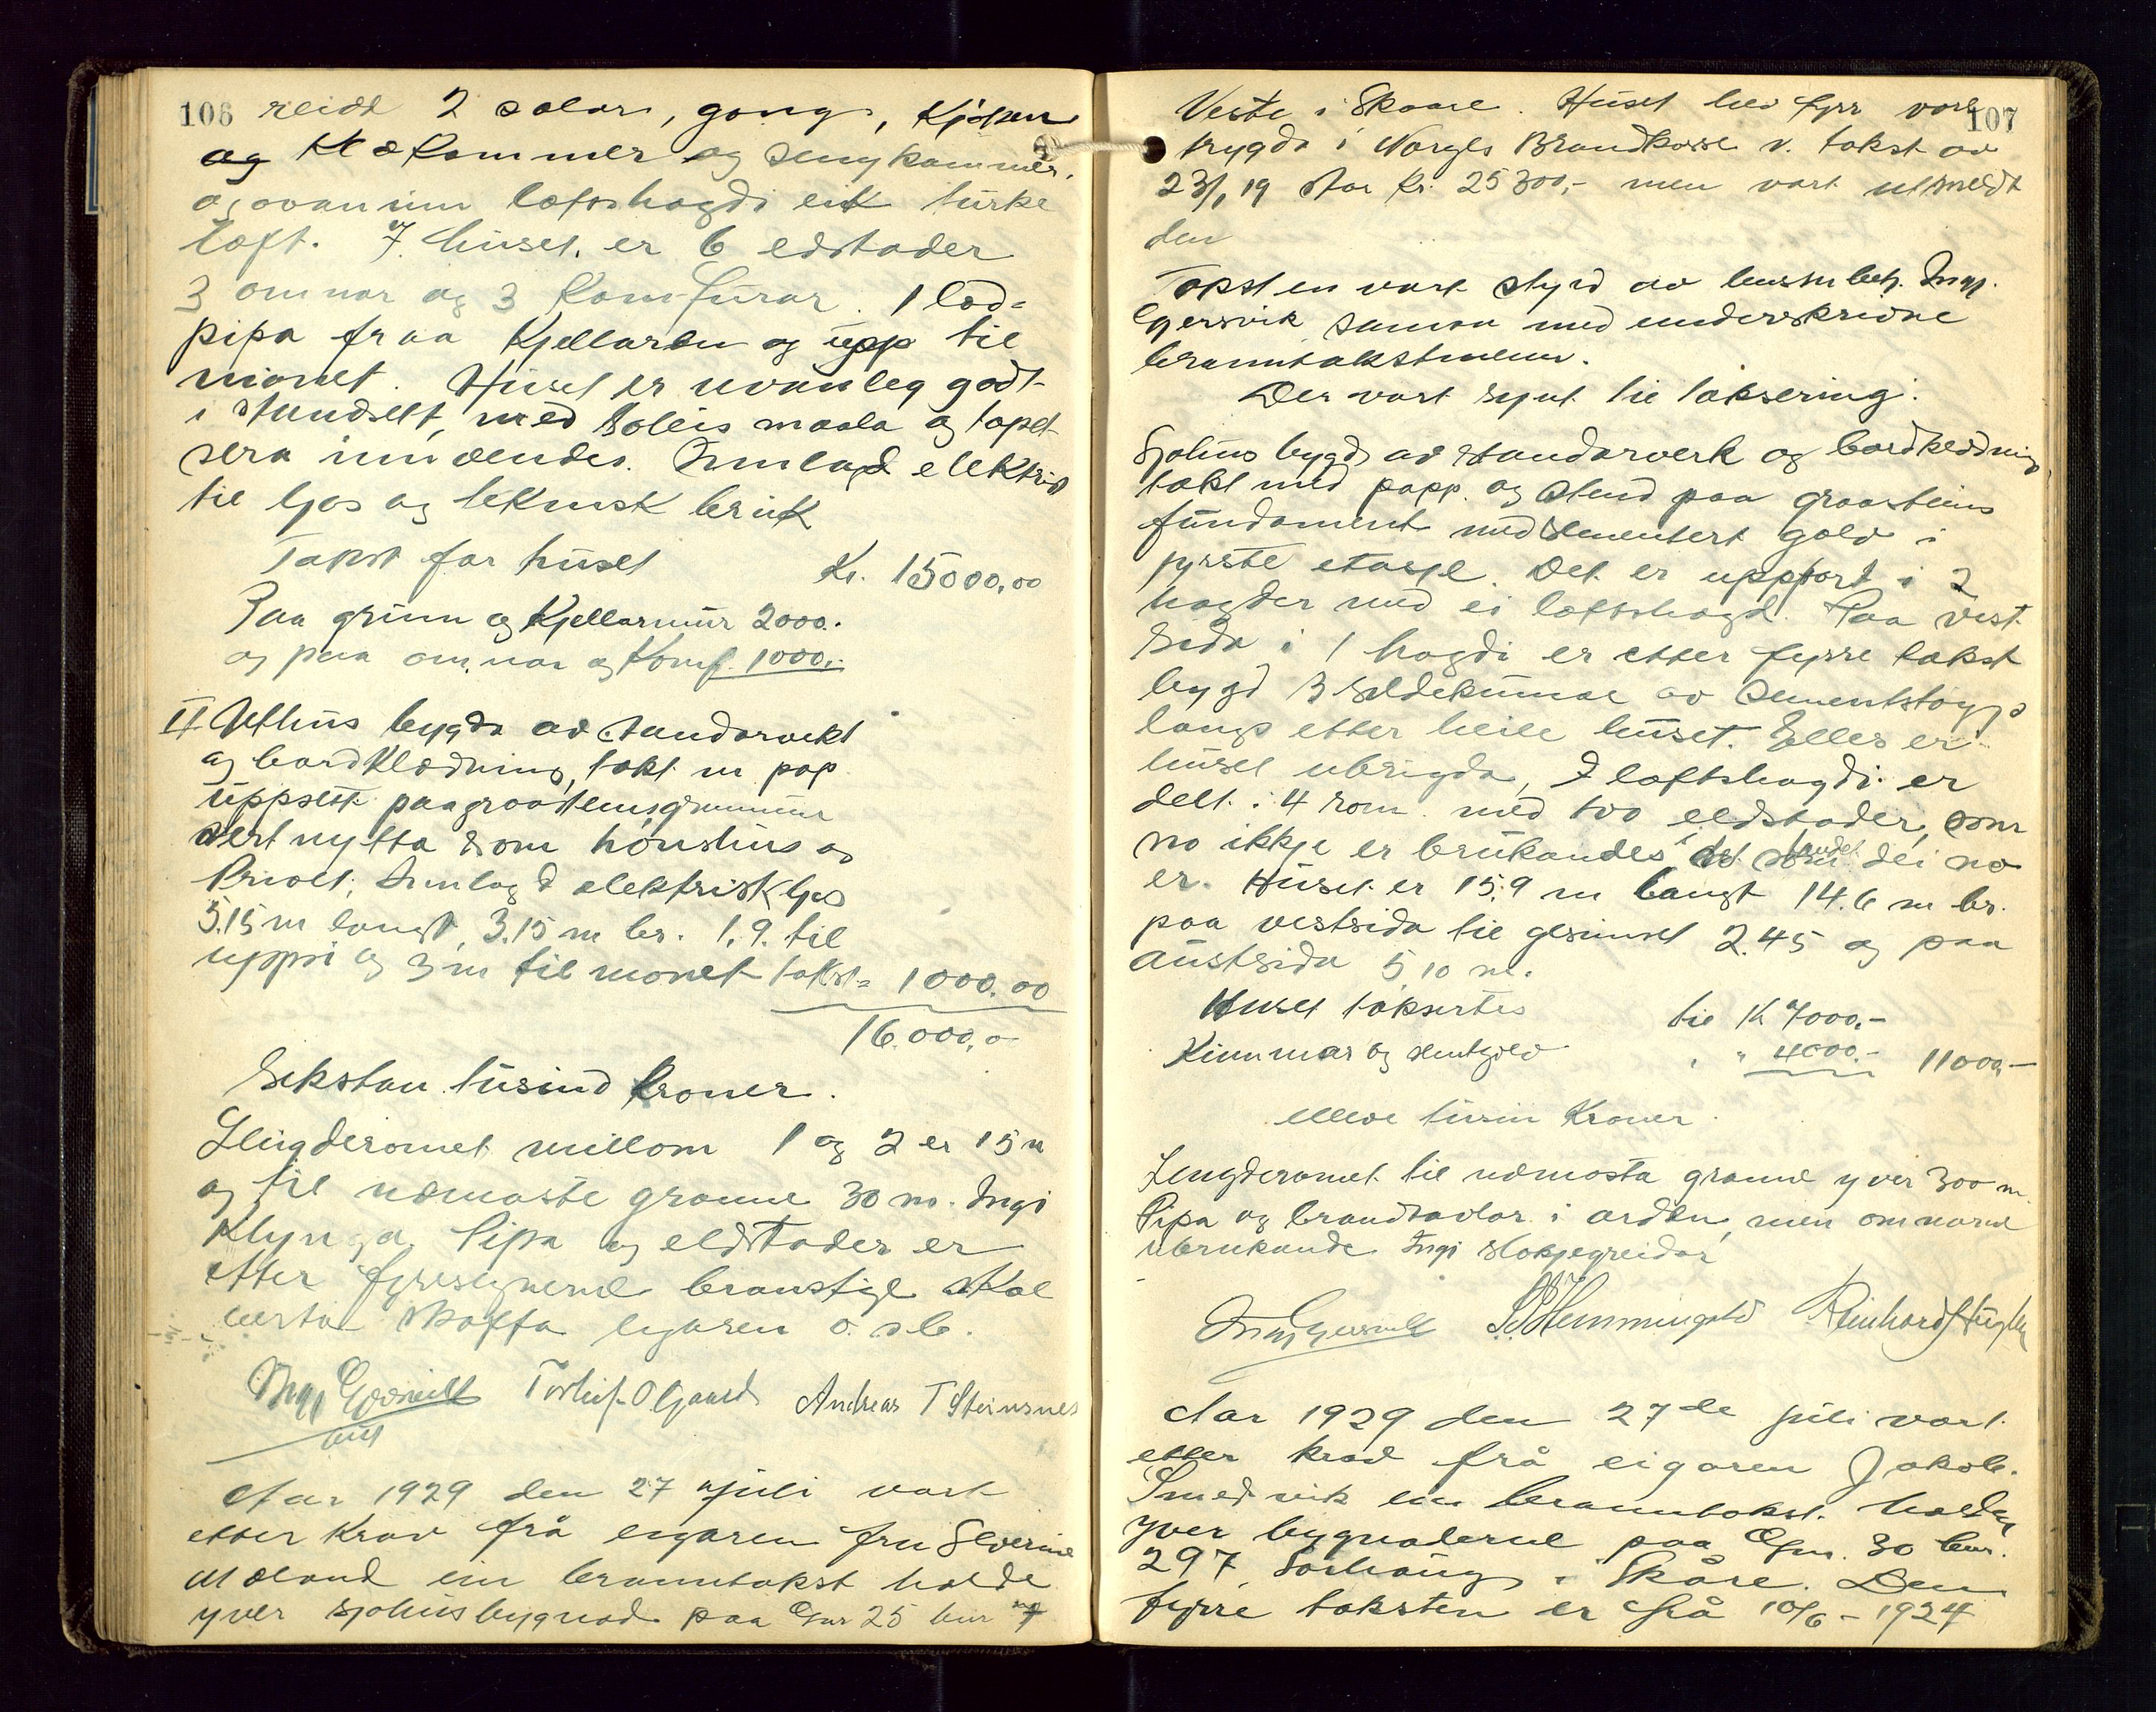 106 reidd 2 salar, gong, Kjøken
og Klækammer og sengkammer.
og ovan inn loftshøgdi eit turke
loft. I huset er 6 eldstader
3 omnar og 3 Komfurar. 1 lod-
pipa fraa Kjellaren og upp til
mønet. Huset er uvanleg godt
i standsett, med
maala og tapet-
sera innvendes. Innlagd elektrisk
til ljos og teknisk bruk
Takst for huset Kr. 15000,00
Paa grunn og Kjellarmur 2000.-
og paa omnar og Komf. 1000.-
II Uthus bygda av standarverk
og bordklædning, tekt m pap
uppsett paa graasteinsgrunnmur
vert nytta som hønsehus og
Privet. Innlagd elektrisk ljos
5.15 m langt, 3.15 m br. 1.9. til
uppsi og 3 m til mønet takst = 1000.00
16.000,0
Sekstan tusind kroner.
Lengderomet millom 1 og 2 er 15 m
og til næmaste granne 30 m. Ingi
Klynga. Pipa og eldstader er
etter fyresegnerne branstige skal
verta skaffa eigaren o. s. b.
Ingv Gjersvik Torleif O Gaard Andreas T Steinsnes
Aar 1929 den 27 juli vart
etter Krav frå eigaren fru Severine
Mæland ein branntakst halde
yver sjøhusbygnad paa Gnr 25 bnr 7
107
Veste i Skaare. Huset hev fyrr vore
trygda i Norges Brandkasse v. takst av
23/1 19 stor kr. 25300,- men vart utmeldt
den
Taksten vart styrd av lensm bet. Ingv.
Gjersvik saman med underskrivne
branntakstmenn.
Der vart synt til taksering:
Sjøhus bygd av standarverk og bordklædning
tekt med papp. og stend paa graasteins
fundament med sementert golv i
fyrste etasje. Det er uppført i 2
høgder med ei loftshøgd. Paa vest
sida i 1 høgdi er etter fyrre takst
bygd 3 sildekummar av sementstøyp
langs etter heile huset. Elles er
huset ubrigda, I loftshøgdi er
delt i 4 rom med tvo eldstader, som
no ikkje er brukandes i det standet dei no
er. Huset er 15.9 m langt 14.6 m br.
paa vestsida til gesimset 2.45 og paa
austsida 5,10 m.
Huset taksertes til Kr 7000.-
Kummar og sementgolv " " 4000.- 11000,-
elleve tusin Kroner.
Lengderomet til næmosta granne yver 300 m.
Pipa og brandtavlar i orden, men omnarne
ubrukande. Ingi sløkjegreidar
Ingv Gjersvik Hemmingstad Reinhard
Aar 1929 den 27de juli vart
etter krav frå eigaren Jakob
Smedvik ein branntakst halden
yver bygnaderne paa Gnr. 30 bnr.
297 Sørhaug i Skåre. Den
fyrre taksten er frå 10/6 - 1924